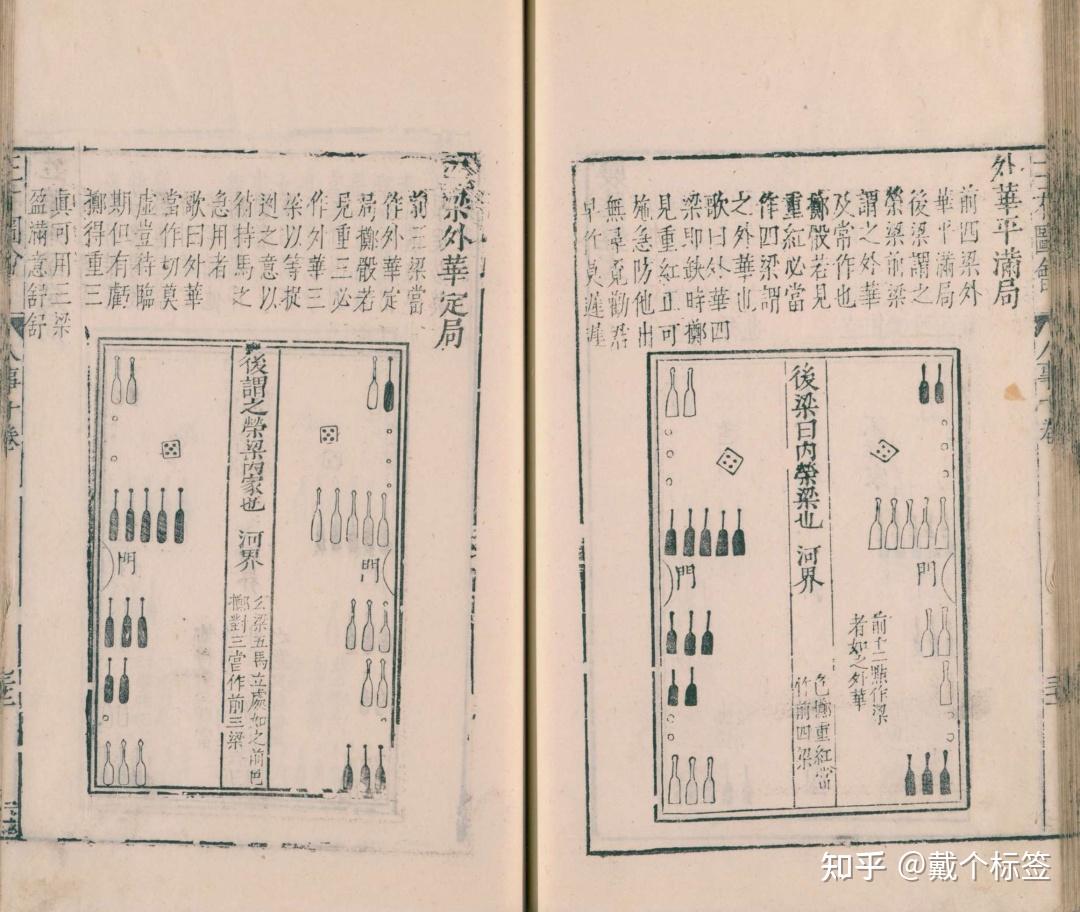 三才圖會 人事十卷
外華平滿局
前四梁外
華平滿局
後梁謂之
榮梁前梁
謂之外華
及常作也
擲骰若見
重紅必當
作四梁謂
之外華也
歌曰外華四
梁即鈌時擲
見重紅正可
施急防他出
無尋覓勸君
早作莫遲遲
門
前十二點作梁
者如之外華
後梁曰内榮梁也 河界
色擲重紅當
作前四梁
門
三梁外華定局
前三梁當
作外華定
局擲骰若
見重三必
作外華三
梁以等捉
迯之意以
待持馬之
急用者
歌曰外華
當作切莫
虚豈待臨
期但有虧
擲得重三
真可用三梁
盈滿意舒舒
門
後謂之榮梁内家也 河界
幺梁五馬立處如之前色
擲對三當作前三梁
門
三才圖會 人事十卷
知乎 @戴个标签